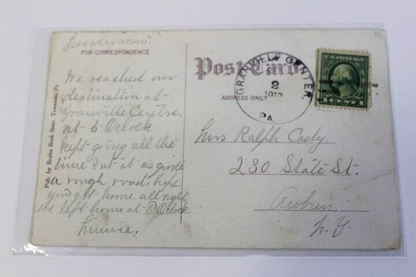 FOR CORRESPONDENCE
We reached our
destination at
Granville Centre
at 5 Oclock
kept going all the
time but it is quite
a rough road hope
you got home all right
we left home at 8 Oclock
Minnie
Post Card
ADDRESS ONLY
GRANVILLE CENTER,
2
PA.
U.S. POSTAGE
1 CENT 1
Mrs Ralph Cady.
230 State St.
Auburn
N.Y